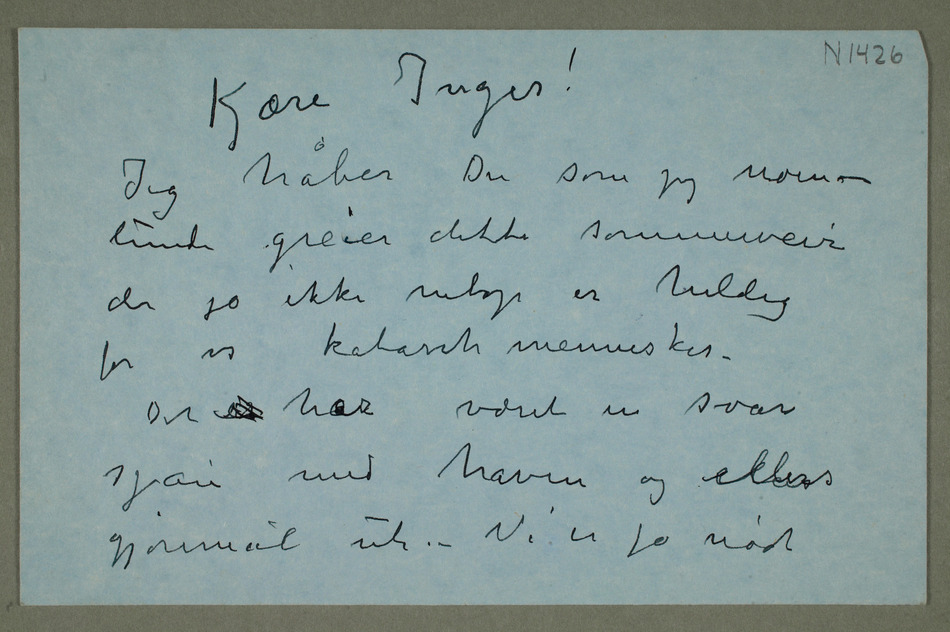 N1426
Kjære Inger!
Jeg håber Du som jeg noen-
lunde greier dette sommerveir
der jo ikke netop er heldig
for os katarrh mennesker.
Det har været en svær
med haven og ellers
gjøremål ute. – Vi er jo nødt